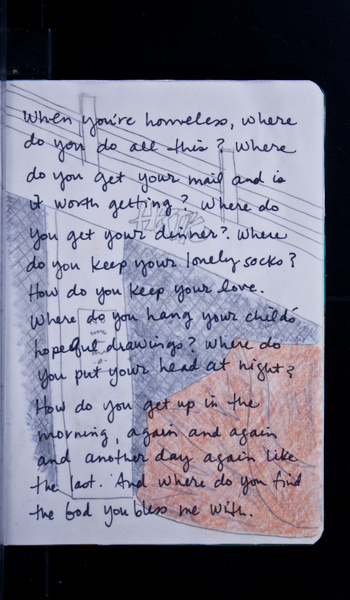 When you're homeless, where
do you do all this? Where
do you get your mail and is
it worth getting? Where do
you get your dinner? Where
do you keep your lonely socks?
How do you keep your love.
Where do you hang your child's
hopeful drawings? Where do
you put your head at night?
How do you get up in the
morning, again and again
and another day again like
the last. And where do you find
the God you bless me with.